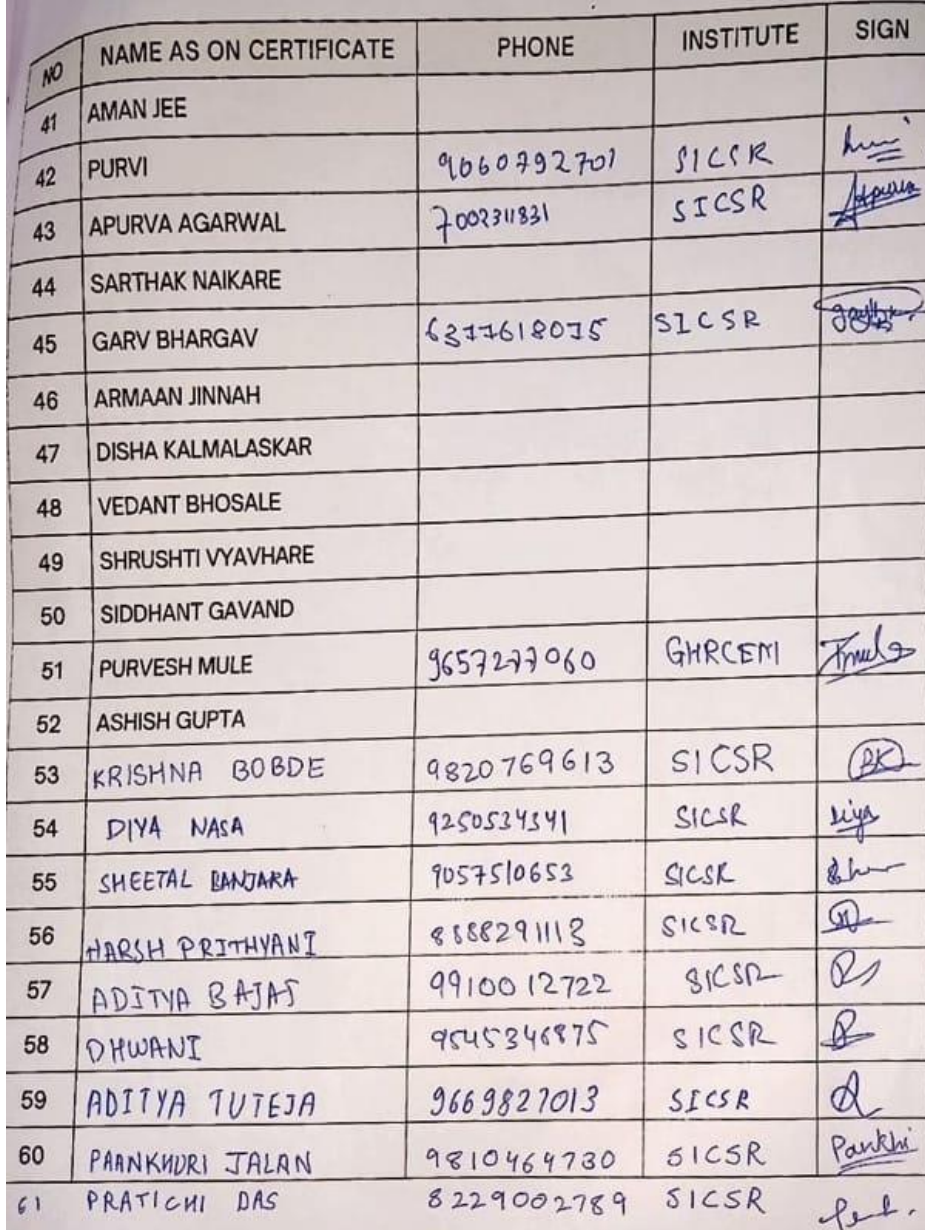 NO NAME AS ON CERTIFICATE PHONE INSTITUTE SIGN
41 AMAN JEE
42 PURVI 9060792701 SICSR
43 APURVA AGARWAL 7002311831 SICSR Apurva
44 SARTHAK NAIKARE
45 GARV BHARGAV 6377618075 SICSR
46 ARMAAN JINNAH
47 DISHA KALMALASKAR
48 VEDANT BHOSALE
49 SHRUSHTI VYAVHARE
50 SIDDHANT GAVAND
51 PURVESH MULE 9657277060 GHRCEM
52 ASHISH GUPTA
53 KRISHNA BOBDE 9820769613 SICSR
54 DIYA NASA 9250534341 SICSR Diya
55 SHEETAL BANJARA 9057510653 SICSR
56 HARSH PRITHYANI SICSR
57 ADITYA BAJAJ 9910012722 SICSR
58 DHWANI SICSR
59 ADITYA TUTEJA 9669827013 SICSR
60 PAANKHURI JALAN 9810464730 SICSR Pankhi
61 PRATICHI DAS 8229002789 SICSR